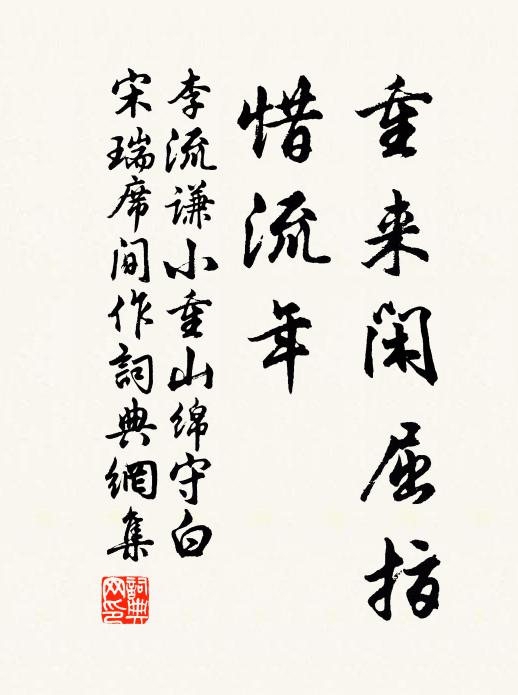 重来闲屈指
惜流年
李流谦小重山绵守白
宋瑞席间作詞典網集
詞典網印